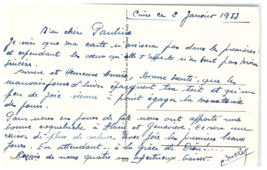 Cuire ce 2 Janvier 1953
Bien chère Pauline
Je vois que ma carte n'arrivera pas dans les premières
et cependant les vœux qu'elle t'apporte n'en sont pas moins
sincères.
Bonne et Heureuse Année, Bonne Santé, que les
mauvais jours d'hiver épargnent ton toit et qu'un
peu de joie vienne à point égayer la monotonie
des jours.
Pour nous ces jours de fête nous ont apporté une
bonne coqueluche à Alain et Geneviève. Encore une
raison de plus de saluer avec joie les premiers beaux
jours. En attendant à la grâce de Dieu
Reçois de nous quatre nos affectueux baisers